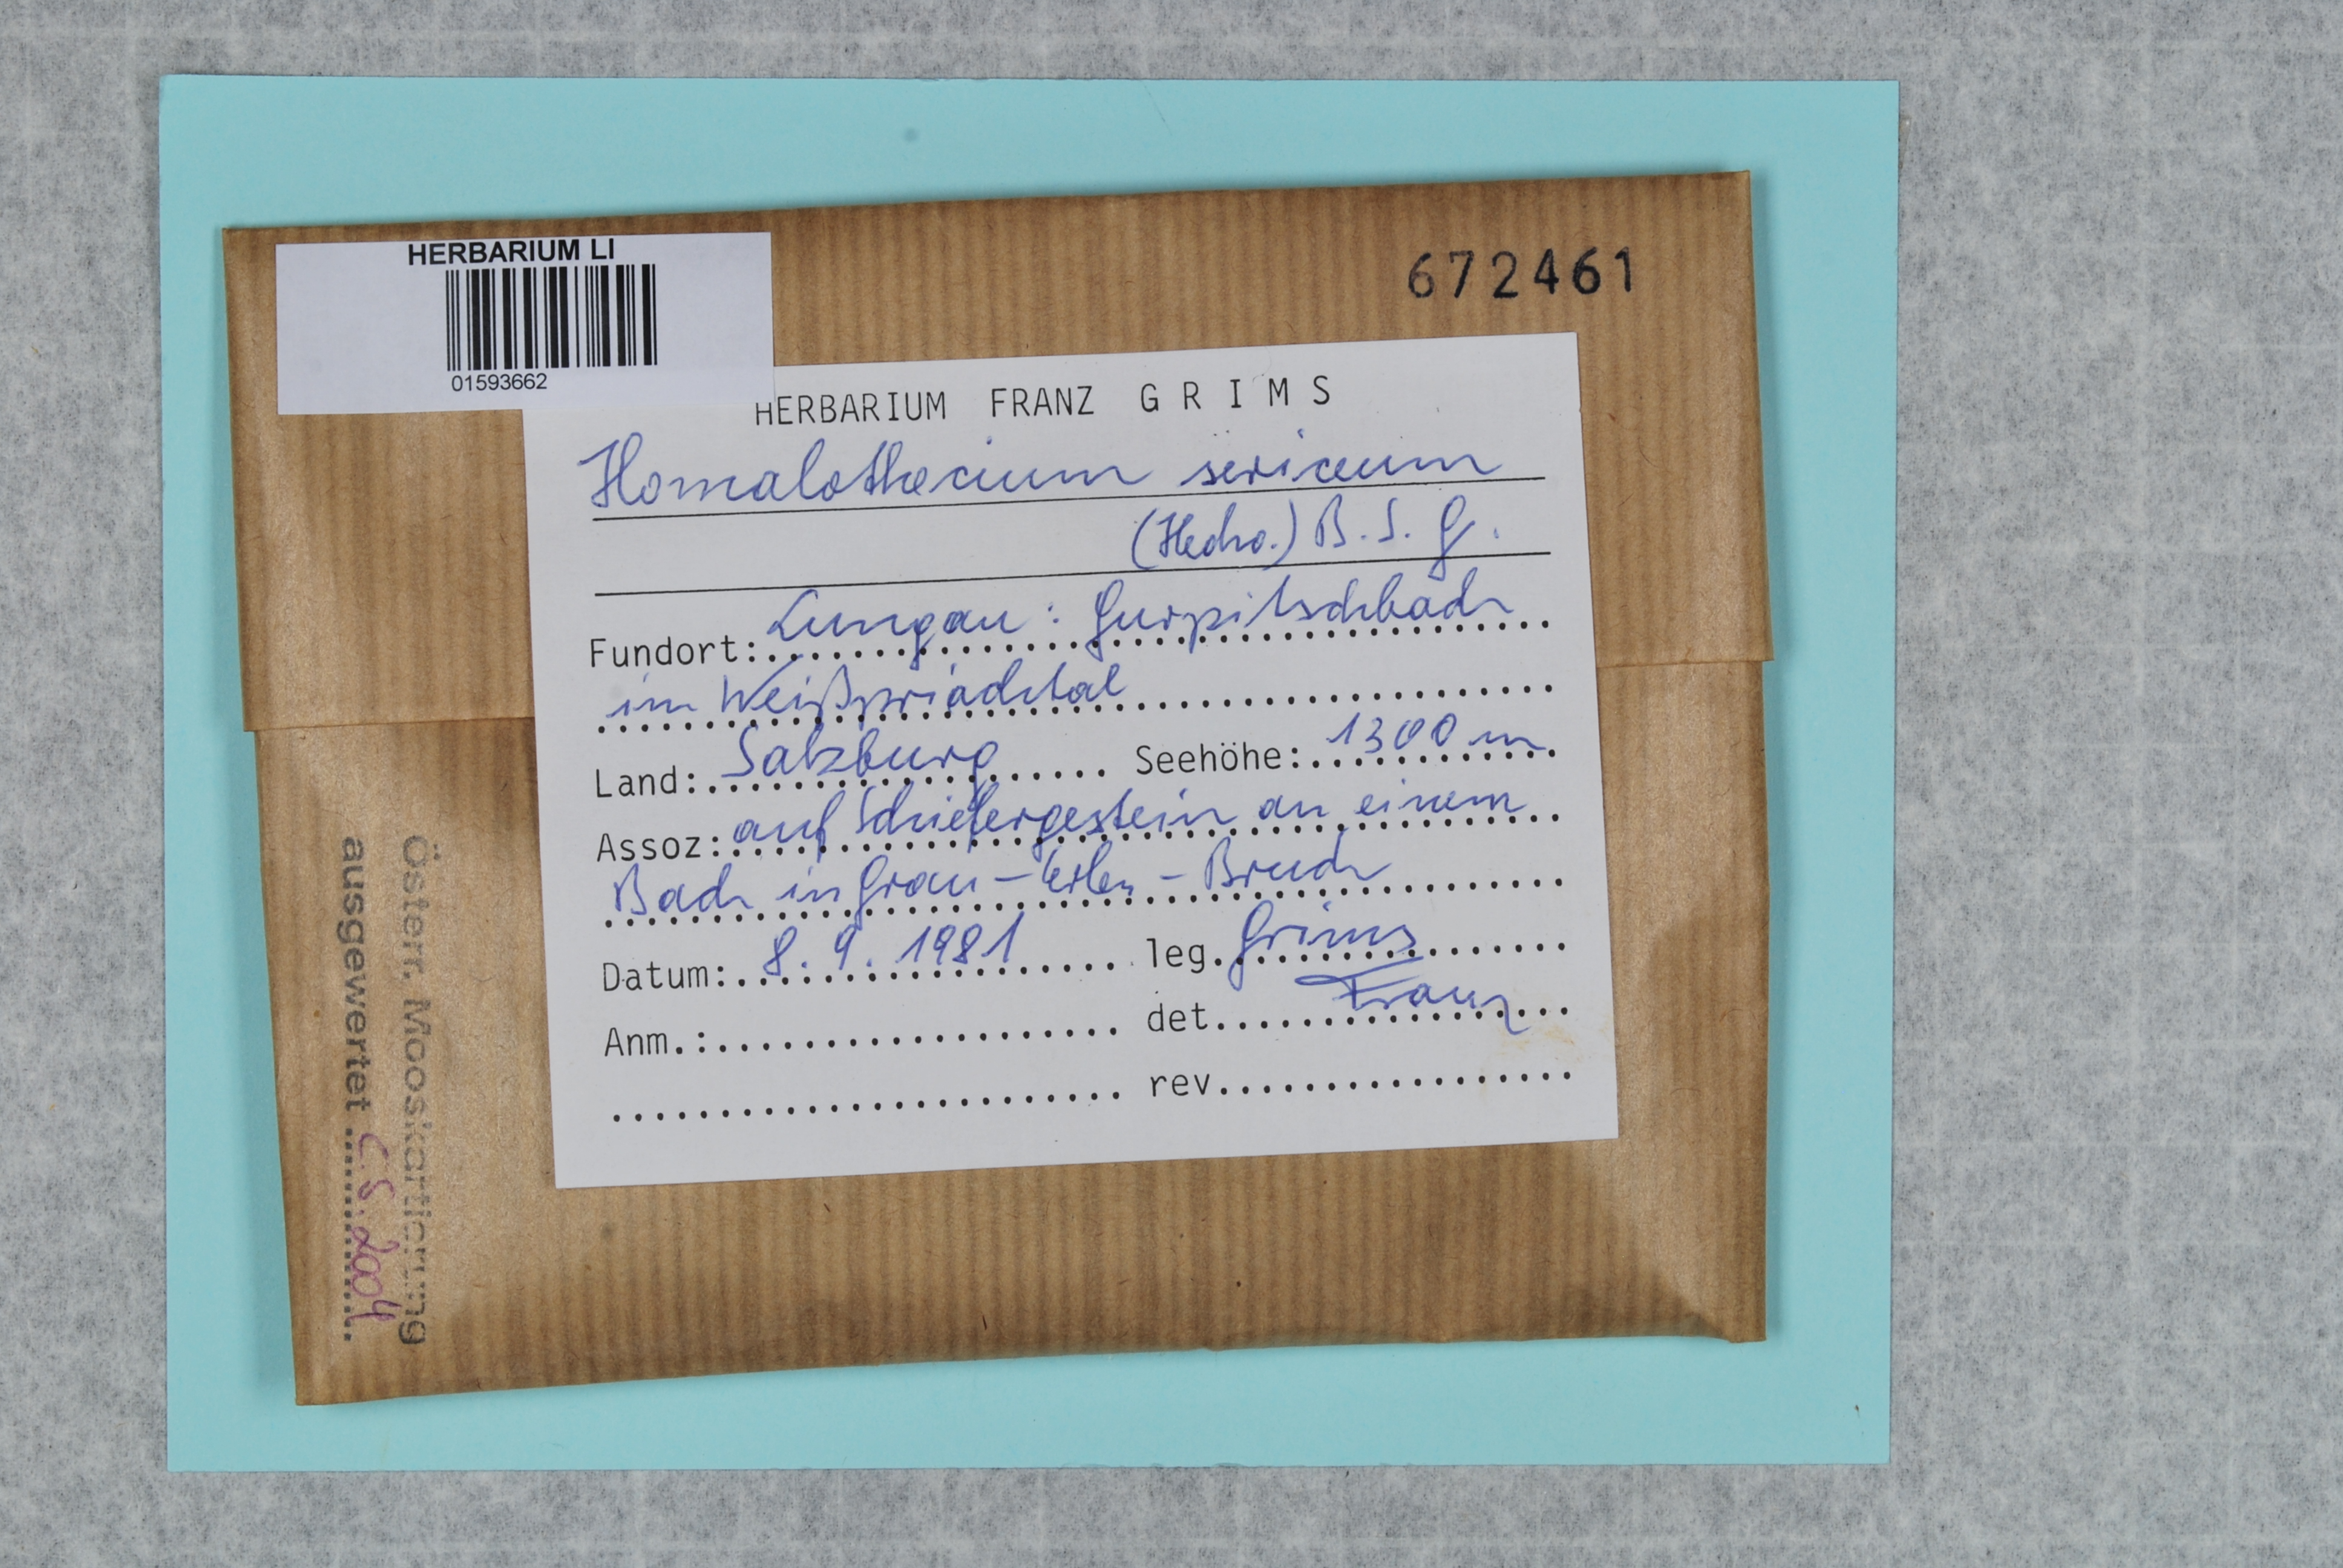 HERBARIUM LI
01593662
672461
HERBARIUM FRANZ GRIMS
Homalothecium sericeum
(Hedw.) B.S.G.
Fundort: Lungau: Gurpitschbach
im Weißpriachtal
Land: Salzburg Seehöhe: 1300 m
Assoz: auf Schiefergestein an einem
Bach in Grau-Erlen-Bruch
Datum: 8.9.1981 leg. Grims
Anm.: det. Franz
rev.
Österr. Mooskartierung
ausgewertet C.S. 2004